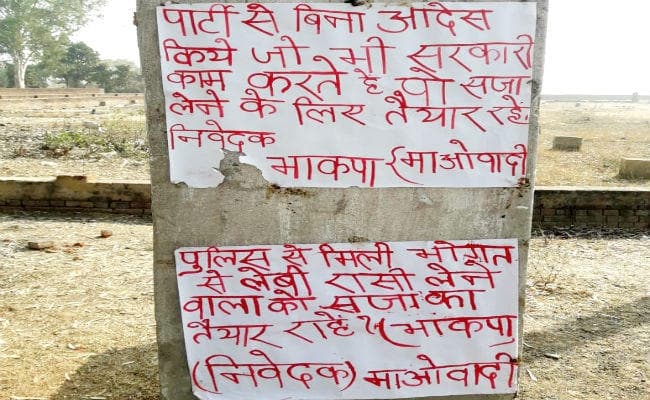 पार्टी से बिना आदेस
किये जो भी सरकारी
काम करते है वो सजा
लेने के लिए तैयार रहे.
निवेदक
भाकपा (माओवादी
पुलिस से मिली भोगत
से लेबी रासी लेने
वाला को सजा का
तैयार राहे (भाकपा
(निवेदक) माओवादी